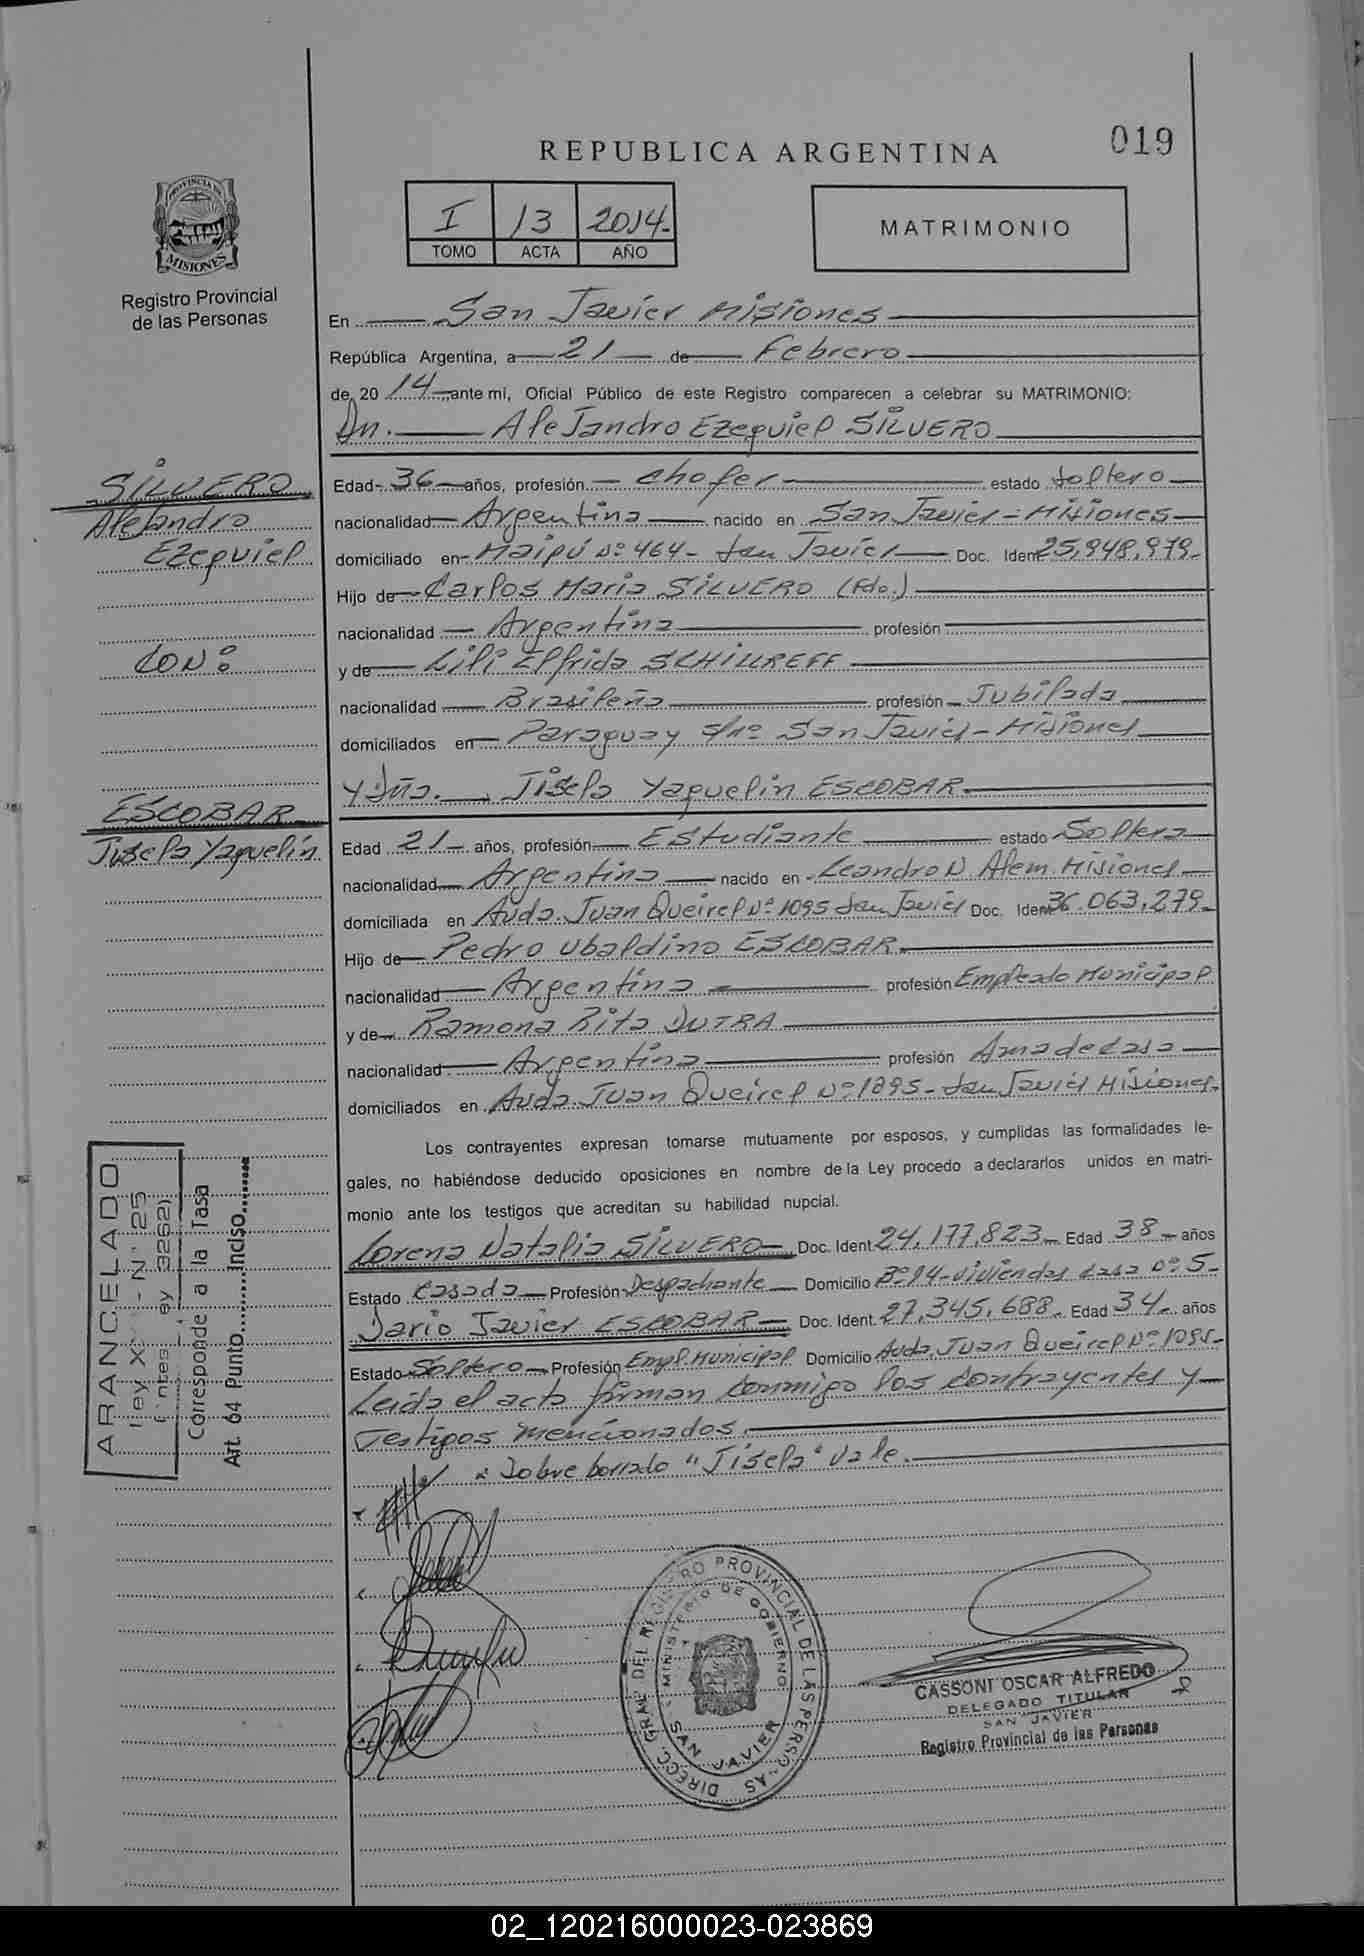 019
REPUBLICA ARGENTINA
I 13 2014-
TOMO ACTA AÑO
MATRIMONIO
PROVINCIA DE
MISIONES
Registro Provincial
de las Personas
En San Javier Misiones
República Argentina, a 21 de Febrero
de 20 14 ante mi, Oficial Público de este Registro comparecen a celebrar su MATRIMONIO:
Dn. Alejandro Ezequiel SILVERO
SILVERO
Alejandro
Ezequiel
CON:
ESCOBAR
Jisela Yaquelin
Edad 36 años, profesión chofer estado soltero
nacionalidad Argentina nacido en San Javier - Misiones
domiciliado en Maipú Nº 464 - San Javier Doc. Iden 25,948,979-
Hijo de Carlos Maria SILVERO (Fdo.)
nacionalidad Argentina profesión
y de Lili Elfrida SCHILLREFF
nacionalidad Brasileña profesión Jubilada
domiciliados en Paraguay s/nº San Javier - Misiones
y Dña. Jisela Yaquelin ESCOBAR.
Edad 21 años, profesión Estudiante estado Soltera
nacionalidad Argentina nacido en Leandro N. Alem. Misiones
domiciliada en Avda. Juan Queirel Nº 1095 San Javier Doc. Iden 36.063,279-
Hijo de Pedro Ubaldino ESCOBAR.
nacionalidad Argentina profesión Empleado Municipal
y de Ramona Rita DUTRA
nacionalidad Argentina profesión Ama de casa
domiciliados en Avda. Juan Queirel Nº 1095 - San Javier Misiones.
Los contrayentes expresan tomarse mutuamente por esposos, y cumplidas las formalidades le-
gales, no habiéndose deducido oposiciones en nombre de la Ley procedo a declararlos unidos en matri-
monio ante los testigos que acreditan su habilidad nupcial.
Lorena Natalia SILVERO Doc. Ident. 24,177,823 Edad 38 años
Estado Casada Profesión Despachante Domicilio Bº 94-viviendas casa Nº 5-
Dario Javier ESCOBAR Doc. Ident. 27,345,688- Edad 34 años
Estado Soltero Profesión Empl. Municipal Domicilio Avda. Juan Queirel Nº 1095-
Leida el acta firman conmigo los contrayentes y
Testigos mencionados.
Sobre borrado "Jisela" vale.
ARANCELADO
Corresponde a la Tasa
Art. 64 Punto Inciso
DIRECC. GRAL. DEL REGISTRO PROVINCIAL DE LAS PERSONAS
MINISTERIO DE GOBIERNO
SAN JAVIER
CASSONI OSCAR ALFREDO
DELEGADO TITULAR
SAN JAVIER
Registro Provincial de las Personas
02_120216000023-023869